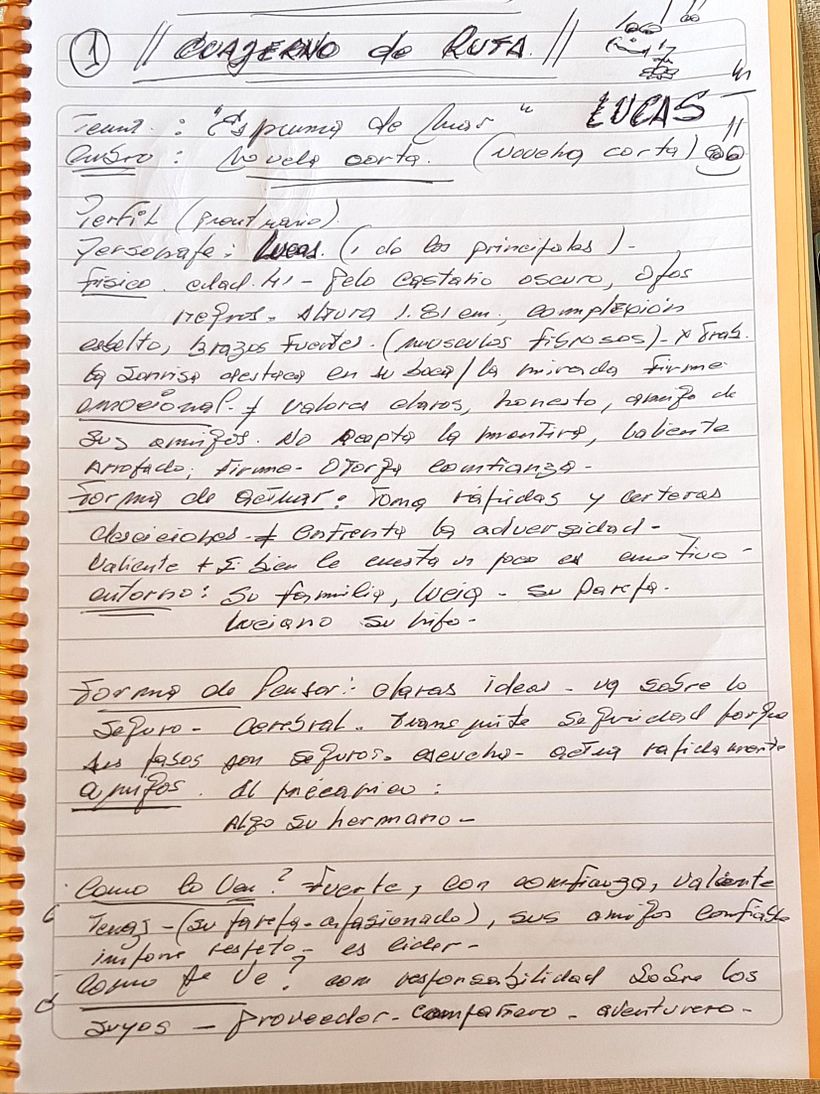 1 // CUADERNO de RUTA. //
LUCAS
Tema. : "Espuma de Mar"
: Novela corta. (Novela corta)
Perfil (prontuario).
Personaje: Lucas. (1 de los principales) -
físico. edad. 41 - Pelo castaño oscuro, ojos
negros. Altura 1.81 cm, complexión
esbelto, brazos fuertes. (musculos fibrosos) -
la sonrisa destaca en su boca / la mirada firme
emocional - + valores claros, honesto, amigo de
sus amigos. No acepta la mentira, valiente
arrojado, firme - Otorga comfianza -
Forma de actuar: Toma rápidas y certeras
desiciones - + enfrenta la adversidad -
Valiente + Si bien le cuesta un poco es emotivo -
entorno: Su familia, Lucía - su Pareja.
Luciano su hijo -
Forma de Pensar: claras ideas - va sobre lo
seguro - cerebral. transmite seguridad porque
sus pasos son seguros. escucha - actúa rapidamente
amigos. El mecanico :
Algo su hermano -
Como lo Ven? Fuerte, con comfianza, valiente
Tenaz - (su pareja - apasionado), sus amigos confiable
impone respeto - es lider -
Como se Ve? com responsabilidad sobre los
suyos - Proveedor - Compañero - aventurero -